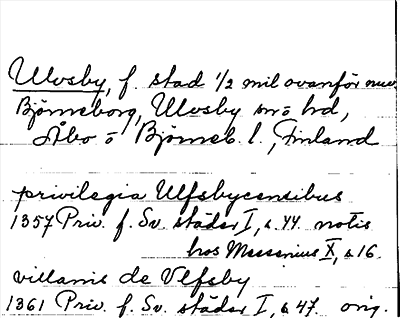 Ulvsby, f. stad 1/2 mil ovanför nuv.
Björneborg, Ulvsby sn ō hd,
Åbo ō Björneb. l., Finland
privilegia Ulfsbycensibus
1357 Priv. f. Sv. städer I, s. 44 notis
hos Messenius X, s 16.
villanis de Vlfsby
1361 Priv. f. Sv. städer I, s 47. orig.